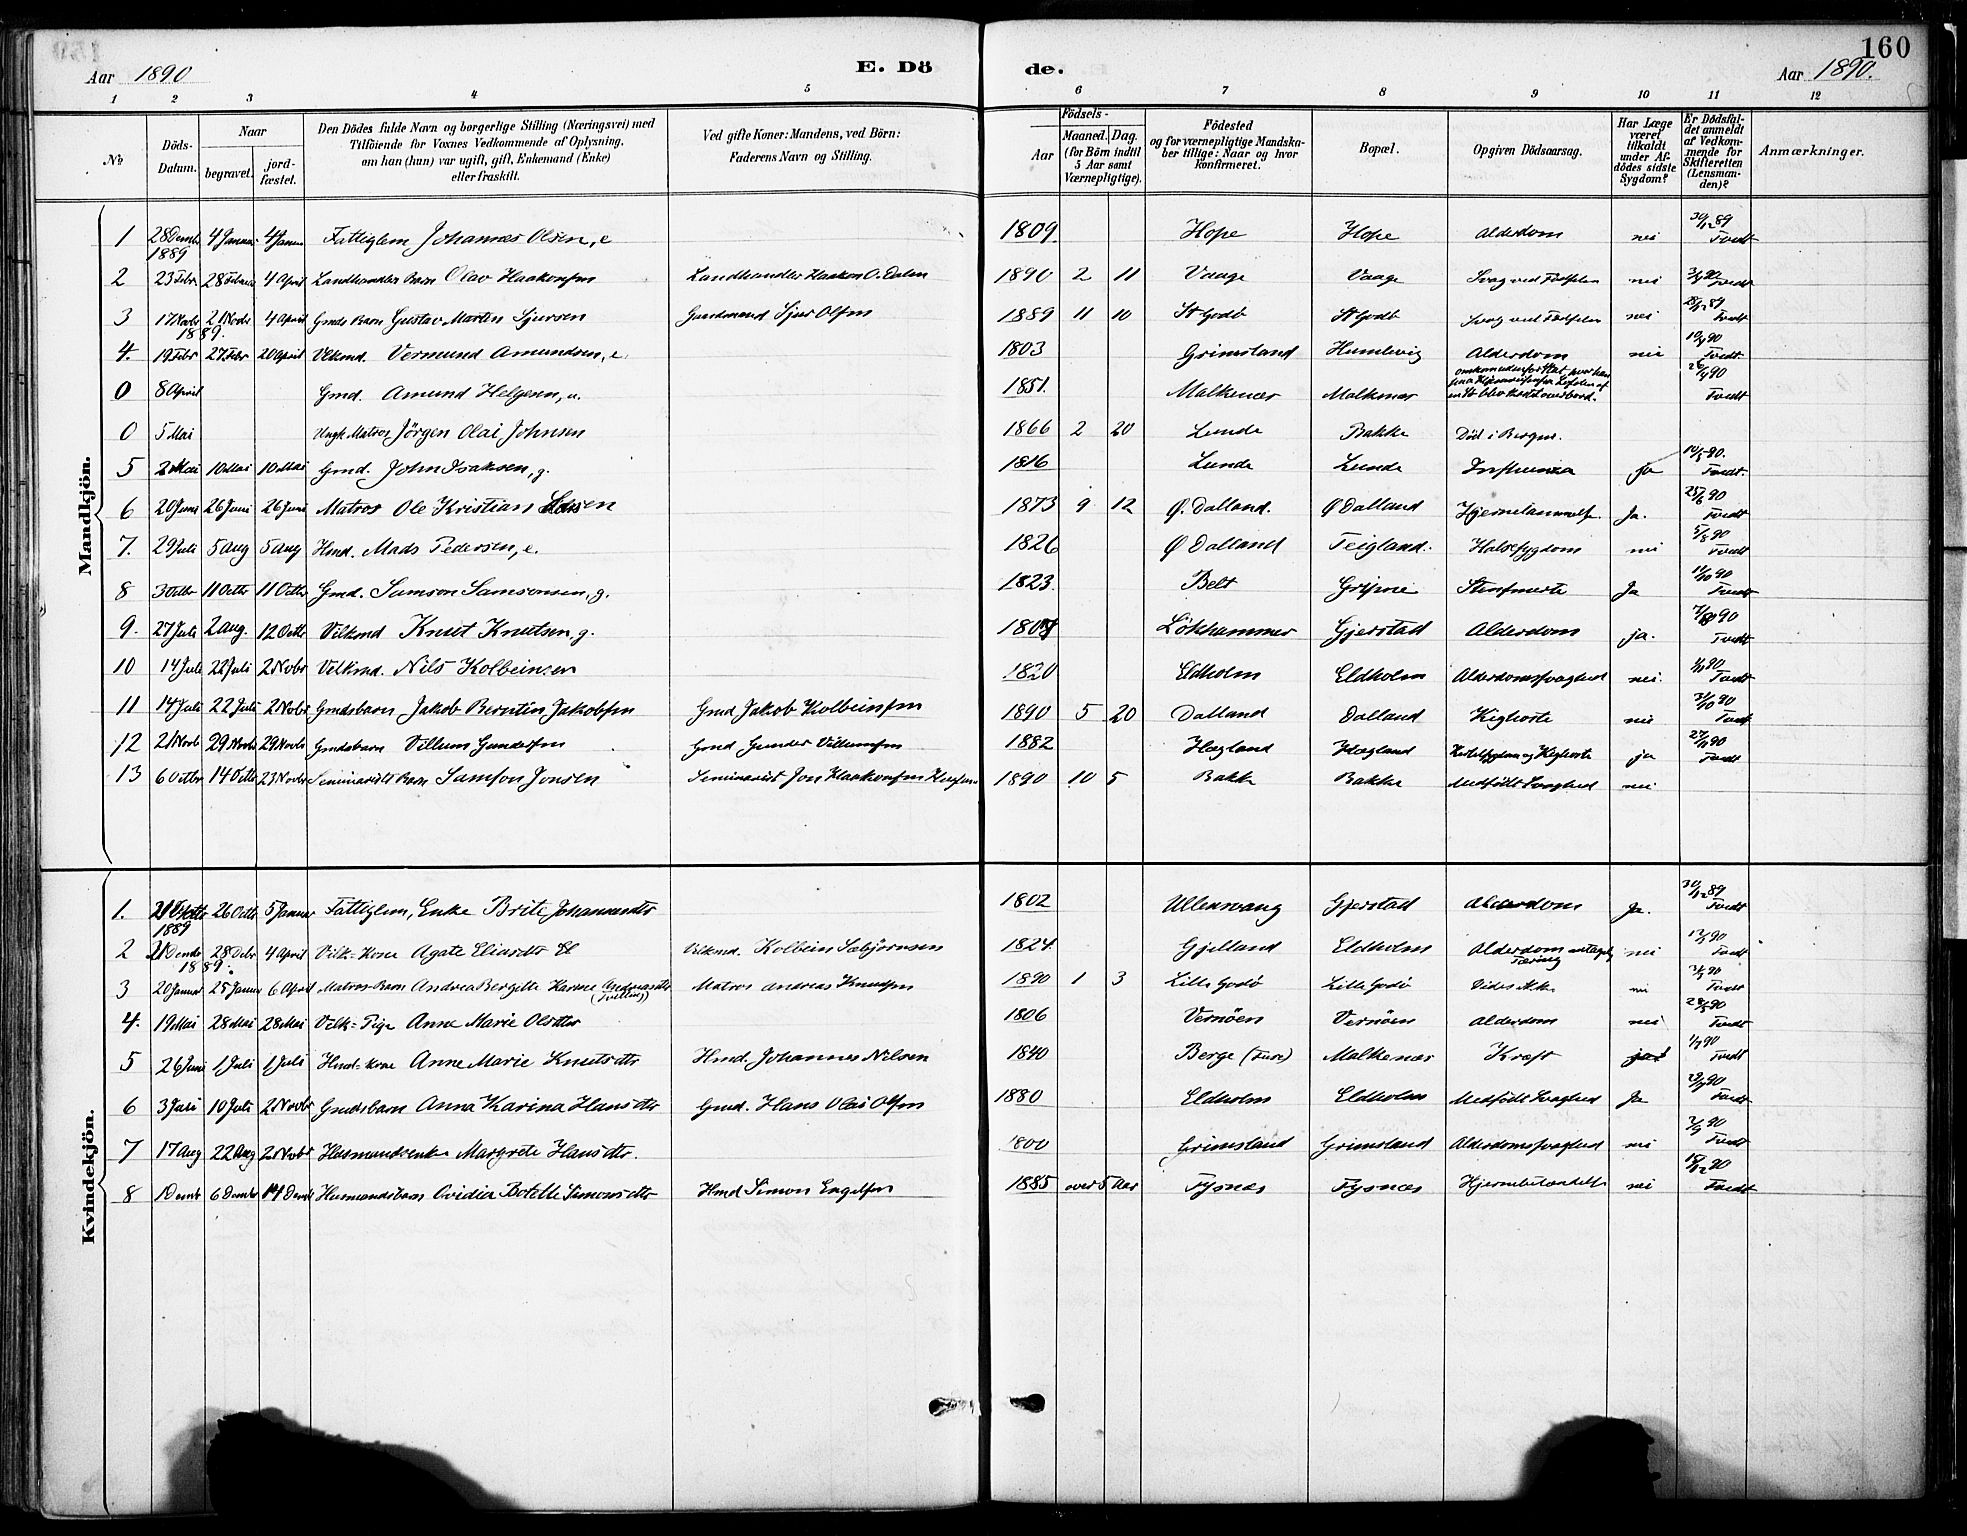 160
Aar 1890 E. Dö de. Aar 1890.
1 2 3 4 5 6 7 8 9 10 11 12
№
Döds-Datum.
Naar
begravet.
jord-fæstet.
Den Dödes fulde Navn og borgerlige Stilling (Næringsvei) med
Tilföiende for Voxnes Vedkommende af Oplysning,
om han (hun) var ugift, gift, Enkemand (Enke)
eller fraskilt.
Ved gifte Koner: Mandens, ved Börn:
Faderens Navn og Stilling.
Födsels-
Aar
Maaned. Dag.
(for Börn indtil
5 Aar samt
Værnepligtige).
Födested
og for værnepligtige Mandska-
ber tillige: Naar og hvor
konfirmeret.
Bopæl.
Opgiven Dödsaarsag.
Har Læge
været
tilkaldt
under Af-
dödes sidste
Sygdom?
Er Dödsfal-
det anmeldt
af Vedkom-
mende for
Skifteretten
(Lensman-
den)?
Anmærkninger.
Mandkjön.
1 28 Decmbr 1889 4 Januar 4 Januar Fattiglem Johannes Olsen, e 1809. Hope Hope Alderdom nei 30/12 89 Tvedt
2 23 Febr 28 Februar 4 April Landhandlers Barn Olav Haakonsen Landhandler Haakon O. Dalen 1890 2 11 Vaage Vaage Svag ved Fødselen nei Tvedt
3 17 Novbr 1889. 21 Novbr 4 April Gmds Barn Gustav Martin Sjursen Gaardmand Sjur Olsen 1889 11 10 St Godö St Godö Svag ved Fødselen nei Tvedt
4. 19 Febr 27 Febr 20 April Vilkmd. Vermund Amundsen, e. 1803 Grimsland Humlevig Alderdom nei 10/4 90 Tvedt
0 8 April Gmd. Amund Helgesen, u. 1851. Malkenæs Malkenæs omkommen 26/4 90 Tvedt
0 5 Mai Ungk. Matros, Jörgen Olai Johnsen 1866 2 20 Lunde Bakke Död i Bergen.
5 2 Mai 10 Mai 10 Mai Gmd. John Isaksen, g. 1816 Lunde Lunde Influenza ja 10/5 90. Tvedt.
6 20 Juni 26 Juni 26 Juni Matros Ole Kristian 1873 9 12 Ø. Dalland. Ø Dalland Hjernelammelse Ja. 25/6 90 Tvedt
7. 29 Juli 5 Aug 5 Aug Hmd. Mads Pedersen, e. 1826 Ø Dalland Teigland. Halssygdom nei 5/8 90 Tvedt
8 3 Octbr 11 Octbr 11 Octbr Gmd. Samson Samsonsen, g. 1823. Belt Gripne Stensmerte Ja 11/10 90 Tvedt
9. 27 Juli 2 Aug. 12 Octbr Vilkmd Knut Knutsen, g. Lökhammer Gjerstad Alderdom ja. Tvedt
10 14 Juli 22 Juli 2 Novbr Vilkmd. Nils Kolbeinsen 1820 Eldholm Eldholm Alderdomssvaghed nei. Tvedt
11 14 Juli 22 Juli 2 Novbr Gmdsbarn Jakob Berntin Jakobsen Gmd Jakob Kolbeinsen 1890 5 20 Dalland Dalland Kighoste nei Tvedt
12 21 Novbr 29 Novbr 29 Novbr Gmdsbarn Villum Gundersen Gmd Gunder Villumsen 1882 Hægland Hægland og Kighoste ja 27/11 90 Tvedt
13 6 Octbr 14 Octbr 23 Novbr Seminarists Barn Samson Jonsen Seminarist Jon Haakonsen 1890 10 5 Bakke Bakke Medfödt Svaghed nei
Kvindekjön.
1. 1889 26 Octbr 5 Januar Fattiglem, Enke Brite Johannesdtr 1802 Ullensvang Gjerstad Alderdom Ja. 30/12 89 Tvedt
2 21 Decmbr 1889. 28 Debr 4 April Vilk-Kone Agate Eliasdtr Vilkmd. Kolbein Sæbjørnsen 1824 Gjelland Eldholm Alderdom Tæring nei Tvedt
3 20 Januar 25 Januar 6 April Matros-Barn Andrea Bergitte Karine Andreasdtr (Tvilling) Matros Andreas Knudsen 1890 1 3 Lille Godö Lille Godö Vides ikke nei Tvedt
4. 19 Mai 28 Mai 28 Mai Vilk-Pige Anne Marie Olsdtr 1806 Vernöen Vernöen Alderdom nei 28/5 90 Tvedt
5 26 Juni 1 Juli 1 Juli Hmd-Kone Anne Marie Knutsdtr Hmd. Johannes Nilsen 1840 Berge (Fuse) Malkenæs Kræft 1/7 90 Tvedt
6 3 Juli 10 Juli 2 Novbr Gmdsbarn Anna Karina Hansdtr Gmd. Hans Olai Olsen 1880 Eldholm Eldholm Medfödt Svaghed Ja Tvedt
7 17 Aug 22 Aug 2 Novbr Husmandsenke Margrete Hansdtr. 1800 Grimsland Grimsland Alderdomssvaghed nei Tvedt
8 1 Decmbr 6 Decmbr 14 Decmbr Husmandsbarn Ovidia Botelle Simonsdtr Hmd Simon Engelsen 1885 over 5 Aar Tysnæs Tysnæs Hjernebetændelse nei 18/12 90 Tvedt